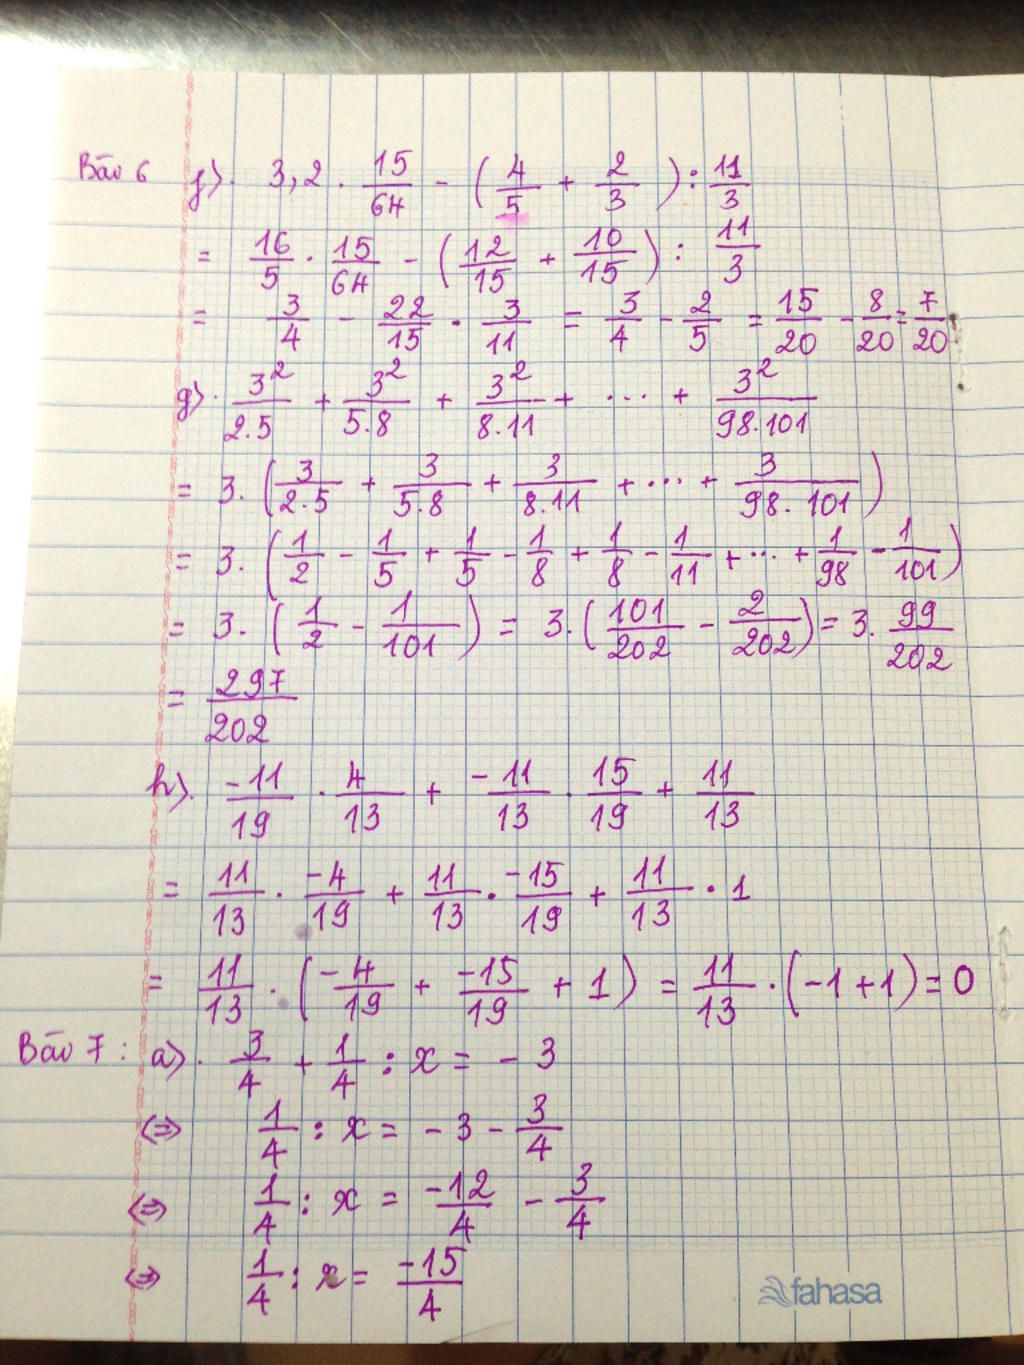 Bài 6 f) 3,2 . 15/64 - (4/5 + 2/3) : 11/3
= 16/5 . 15/64 - (12/15 + 10/15) : 11/3
= 3/4 - 22/15 . 3/11 = 3/4 - 2/5 = 15/20 - 8/20 = 7/20
g) 3²/2.5 + 3²/5.8 + 3²/8.11 + ... + 3²/98.101
= 3. (3/2.5 + 3/5.8 + 3/8.11 + ... + 3/98.101)
= 3. (1/2 - 1/5 + 1/5 - 1/8 + 1/8 - 1/11 + ... + 1/98 - 1/101)
= 3. (1/2 - 1/101) = 3. (101/202 - 2/202) = 3. 99/202
= 297/202
h) -11/19 . 4/13 + -11/13 . 15/19 + 11/13
= 11/13 . -4/19 + 11/13 . -15/19 + 11/13 . 1
= 11/13 . (-4/19 + -15/19 + 1) = 11/13 . (-1 + 1) = 0
Bài 7 : a) 3/4 + 1/4 : x = - 3
⇔ 1/4 : x = - 3 - 3/4
⇔ 1/4 : x = -12/4 - 3/4
⇔ 1/4 : x = -15/4
fahasa